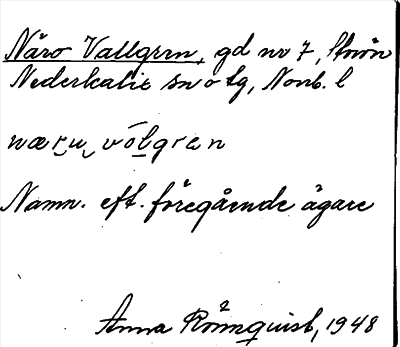 Näro Vallgren, gd nr 7, Storön
Nederkalix sn o tg, Norrb. l
næru vólgren
Namn. eft. föregående ägare
Anna Rönnquist, 1948